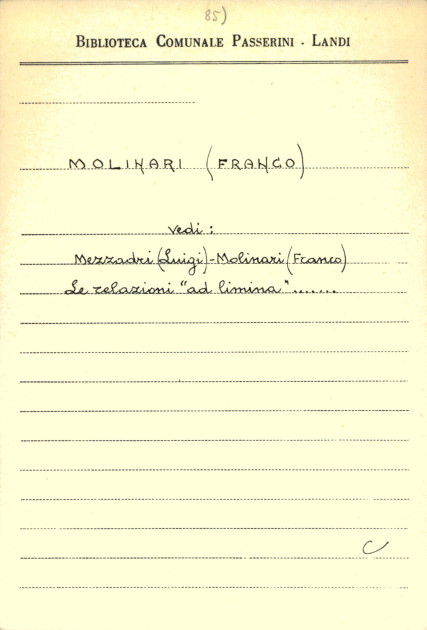 85)
BIBLIOTECA COMUNALE PASSERINI - LANDI
MOLINARI (FRANCO)
vedi :
Mezzadri (Luigi) - Molinari (Franco)
Le relazioni "ad limina".......
C